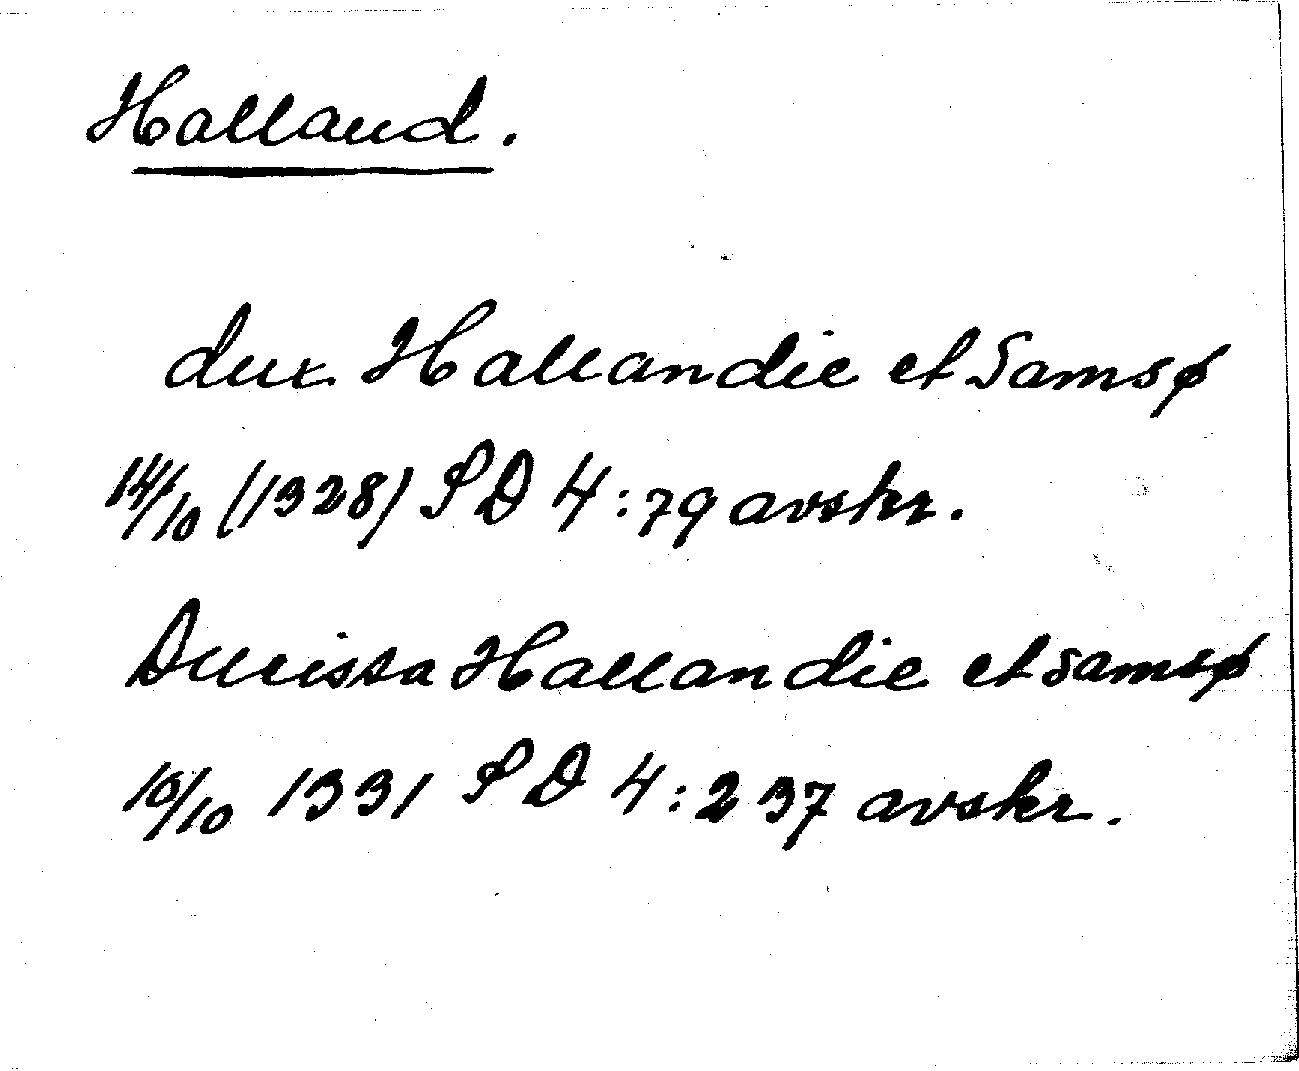 Halland.
dux Hallandie et Samsø
14/10 (1328) SD 4:79 avskr.
Ducissa Hallandie et Samsø
10/10 1331 SD 4:237 avskr.